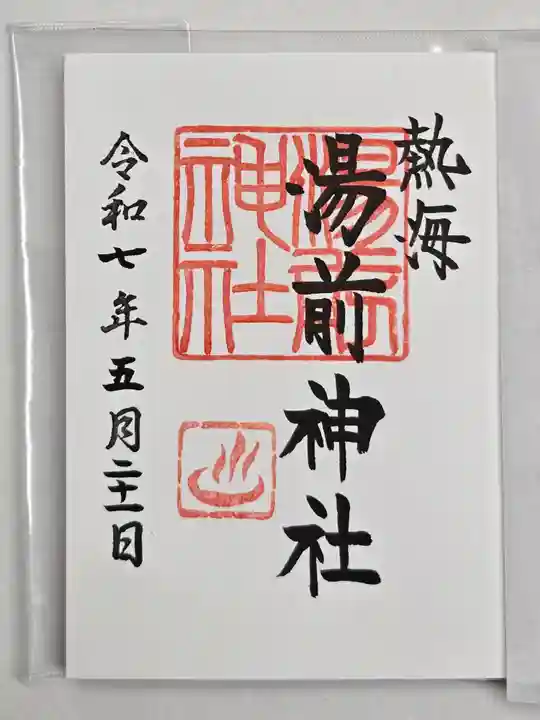 熱海
湯前神社
湯前
神社
令和七年五月二十一日